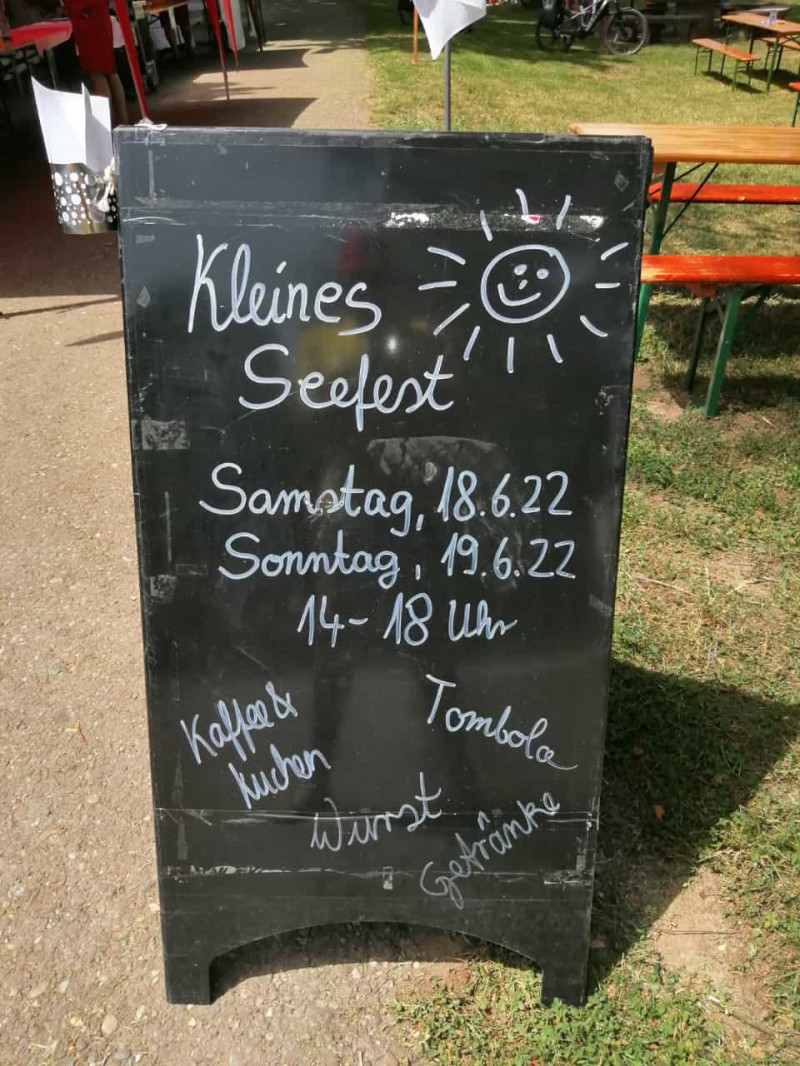 Kleines
Seefest
Samstag, 18.6.22
Sonntag, 19.6.22
14-18 Uhr
Kaffee &
Kuchen
Tombola
Wurst
Getränke